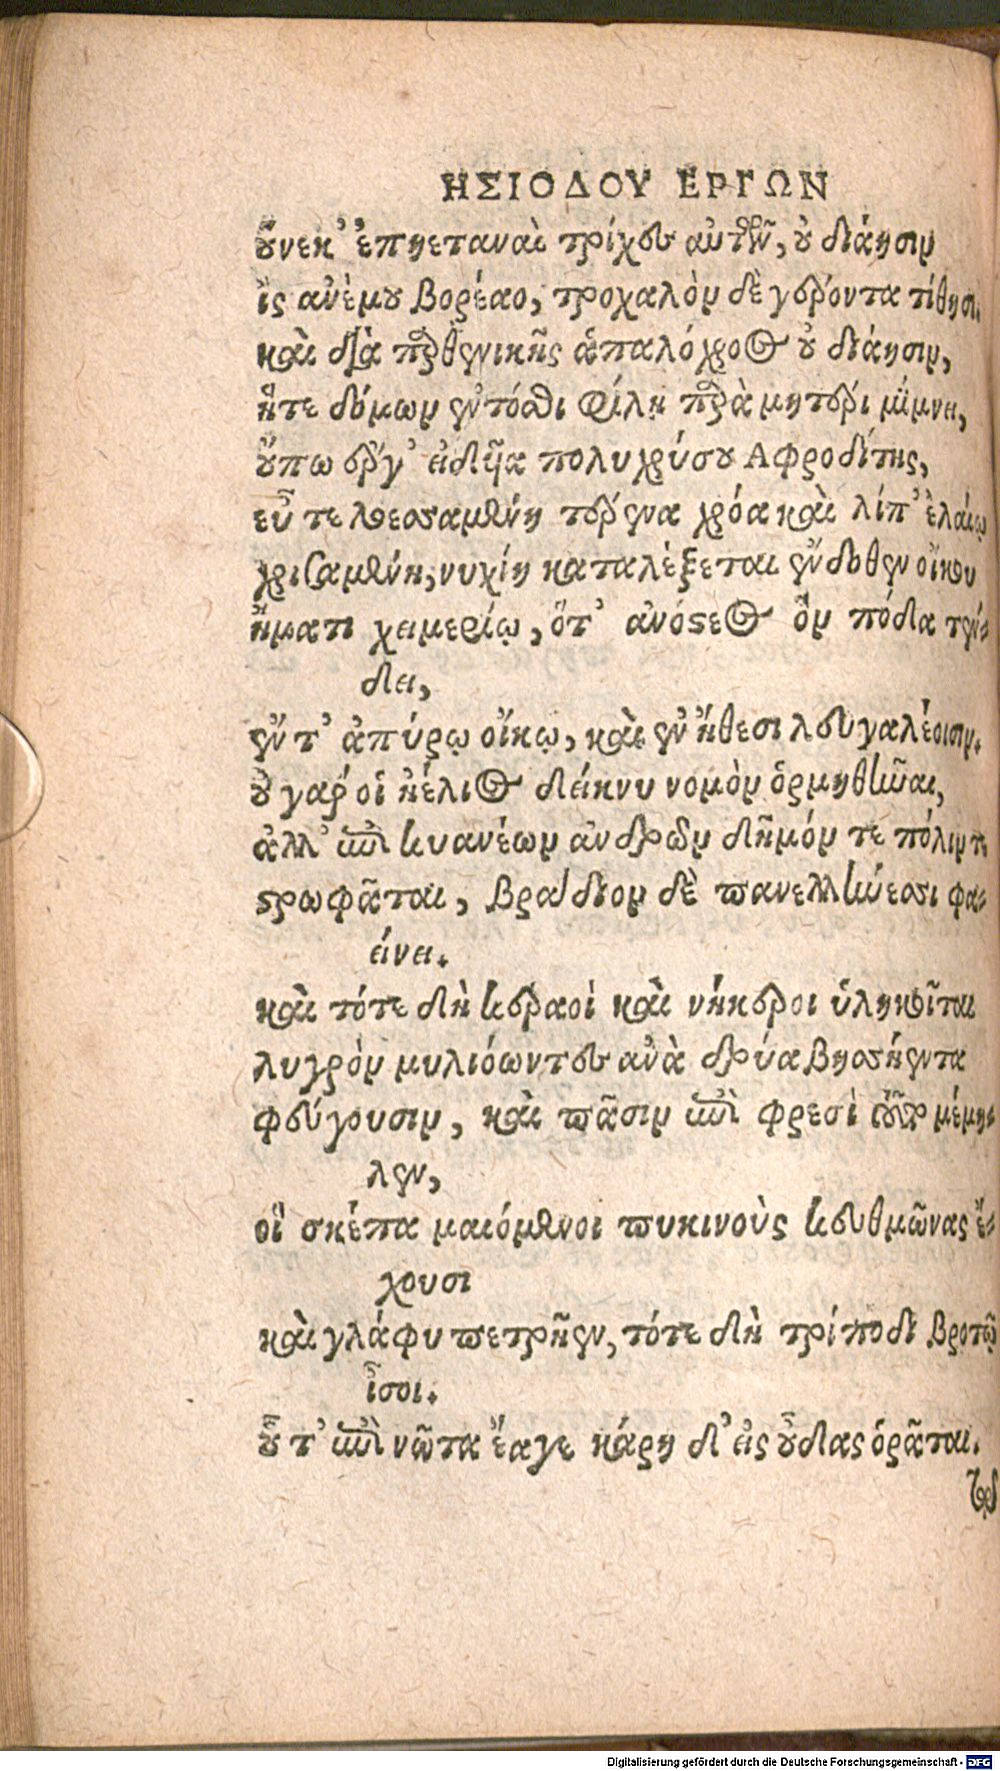 ΗΣΙΟΔΟΥ ΕΡΓΩΝ
οὕνεκ' ἐπηεταναὶ τρίχες αὐτῶν, οὐ διάησιν
ἲς ἀνέμου βορέαο, τροχαλὸν δὲ γέροντα τίθησι.
καὶ διὰ παρθενικῆς ἁπαλόχροος οὐ διάησιν,
ἥτε δόμων ἔντοσθι φίλῃ παρὰ μητέρι μίμνει,
οὔπω ἔργ' εἰδυῖα πολυχρύσου Αφροδίτης,
εὖ τε λοεσσαμένη τέρενα χρόα καὶ λίπ' ἐλαίῳ
χρισαμένη, νυχίη καταλέξεται ἔνδοθεν οἴκου
ἤματι χειμερίῳ, ὅτ' ἀνόστεος ὃν πόδα τέν-
δει,
ἔν τ' ἀπύρῳ οἴκῳ, καὶ ἐν ἤθεσι λευγαλέοισιν.
οὐ γάρ οἱ ἠέλιος δείκνυ νομὸν ὁρμηθῆναι,
ἀλλ' ἐπὶ κυανέων ἀνδρῶν δῆμόν τε πόλιν τε
στρωφᾶται, βράδιον δὲ πανελλήνεσσι φα-
είνει.
καὶ τότε δὴ κεραοὶ καὶ νήκεροι ὑληκοῖται
λυγρὸν μυλιόωντες ἀνὰ δρύα βησσήεντα
φεύγουσιν, καὶ πᾶσιν ἐπὶ φρεσὶ τοῦτο μέμη-
λεν,
οἳ σκέπα μαιόμενοι πυκινοὺς κευθμῶνας ἔ-
χουσι
καὶ γλάφυ πετρῆεν, τότε δὴ τρίποδι βροτῷ
ἶσοι.
οὗ τ' ἐπὶ νῶτα ἔαγε κάρη δ' εἰς οὖδας ὁρᾶται.
τῷ
Digitalisierung gefördert durch die Deutsche Forschungsgemeinschaft - DFG